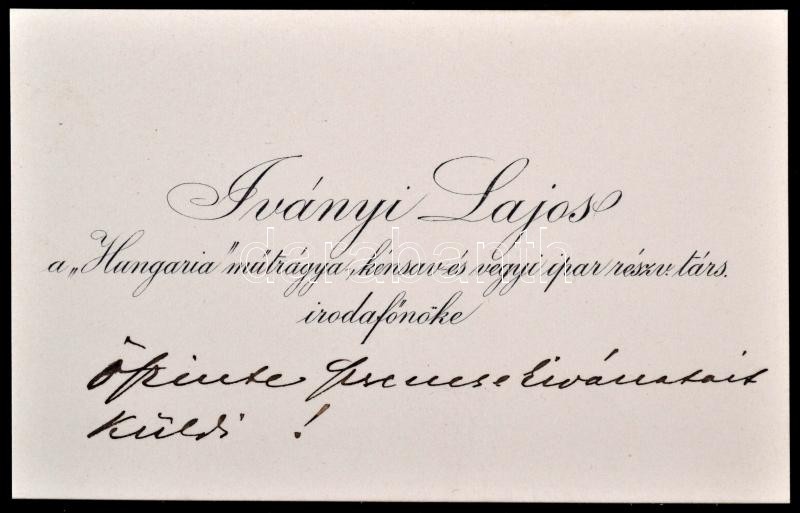 Iványi Lajos
a „Hungaria" műtrágya-, kénsav-és vegyi ipar részv. társ.
irodafőnöke
őszinte szerencsekivánatait
küldi !
darabanth